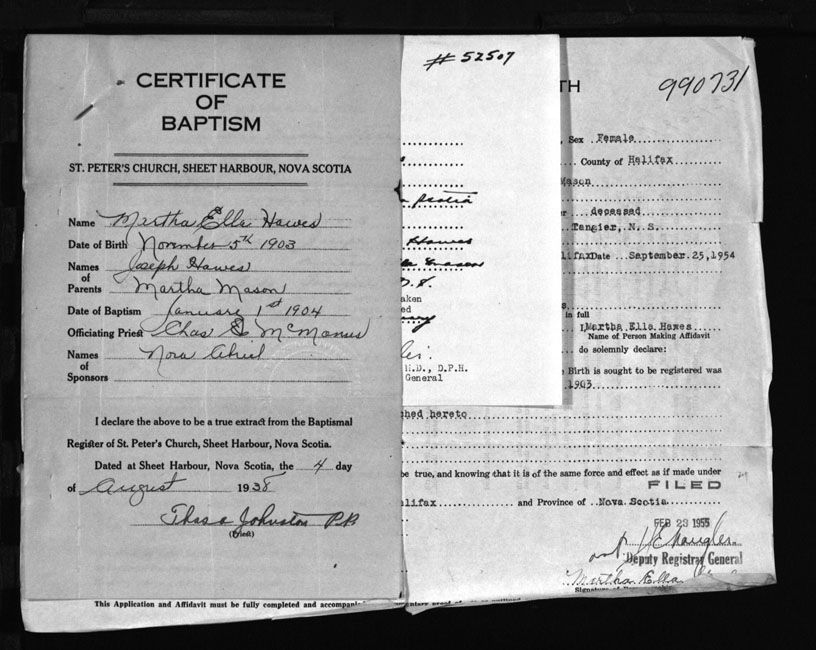 CERTIFICATE
OF
BAPTISM
ST. PETER'S CHURCH, SHEET HARBOUR, NOVA SCOTIA
Name Martha Ella Hawes
Date of Birth November 5th 1903
Names of Parents Joseph Hawes
Martha Mason
Date of Baptism January 1st 1904
Officiating Priest Chas McManus
Names of Sponsors Nora
I declare the above to be a true extract from the Baptismal
Register of St. Peter's Church, Sheet Harbour, Nova Scotia.
Dated at Sheet Harbour, Nova Scotia, the 4 day
of August 1938
Johnston P.P.
(Priest)
This Application and Affidavit must be fully completed and
#52507
Scotia
Hawes
Mason
M.D., D.P.H.
General
TH
990731
Sex Female
County of Halifax
Mason
deceased
Tangier, N. S.
Date September 25, 1954
in full
I, Martha Ella Hawes
Name of Person Making Affidavit
do solemnly declare:
Birth is sought to be registered was
1903
hereto
be true, and knowing that it is of the same force and effect as if made under
FILED
and Province of Nova Scotia
FEB 23 1955
Deputy Registrar General
Martha Ella
Signature of